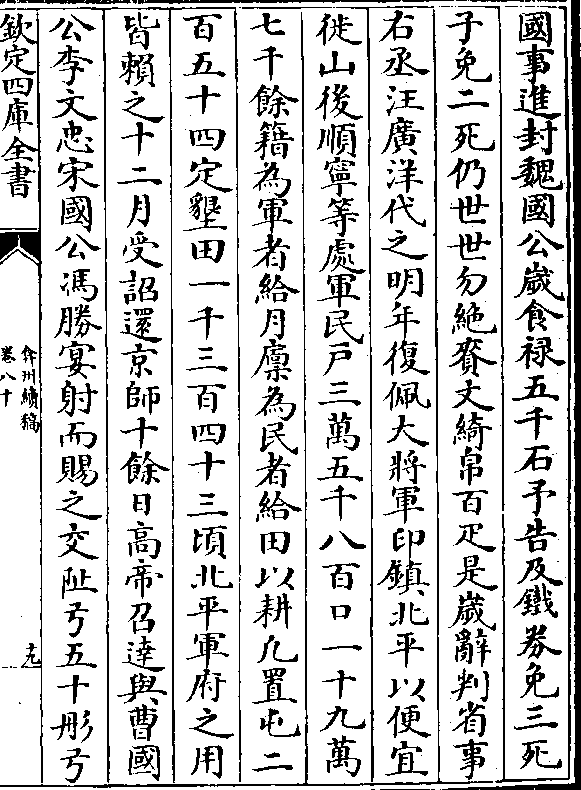 國事進封魏國公歳食祿五千石予告及鐵券免三死
子免二死仍世世勿絶賚文綺帛百疋是歳辭判省事
右丞汪廣洋代之明年復佩大將軍印鎮北平以便宜
徙山後順寧等處軍民戶三萬五千八百口一十九萬
七千餘籍為軍者給月廩為民者給田以耕凡置屯二
百五十四定墾田一千三百四十三頃北平軍府之用
皆賴之十二月受詔還京師十餘日高帝召逹與曹國
公李文忠宋國公馮勝宴射而賜之交阯弓五十彤弓
欽定四庫全書
弇州續稿
卷八十
十九